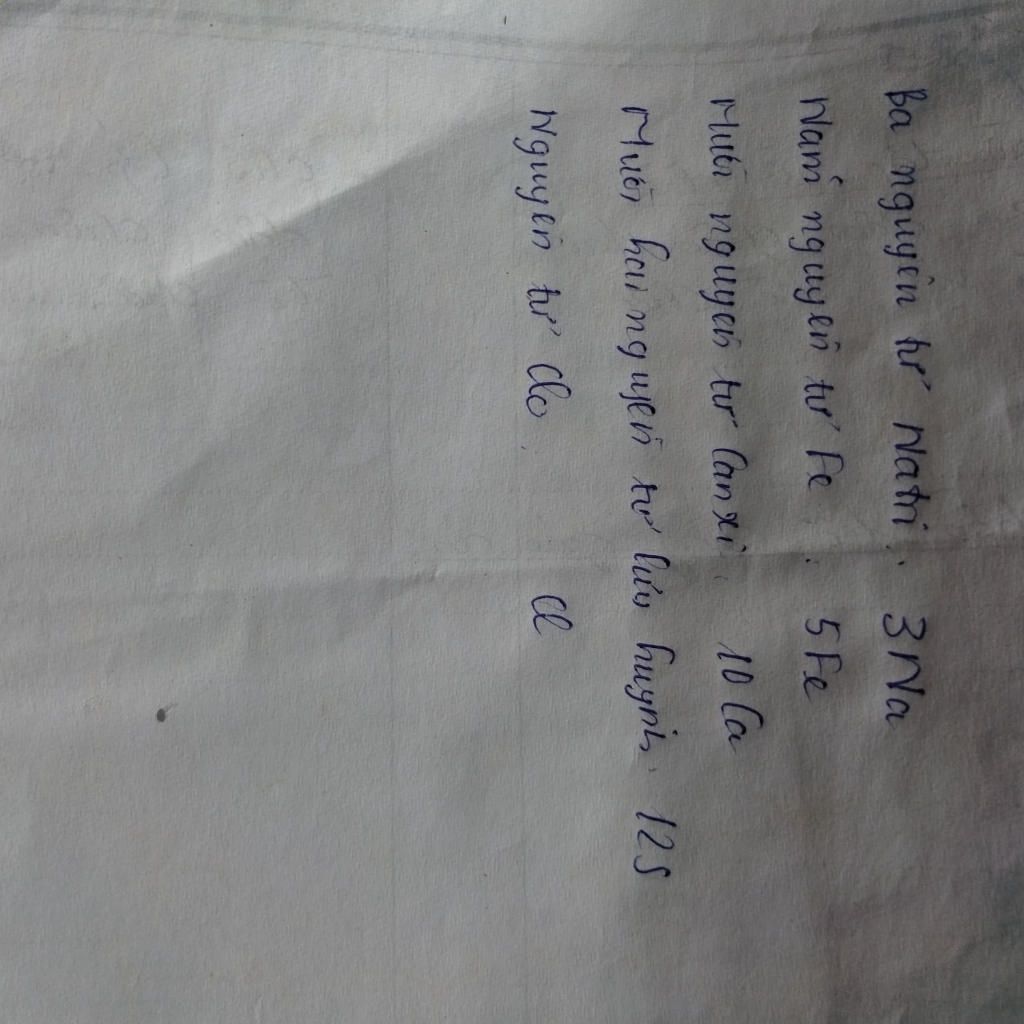 Ba nguyên tử Natri. 3Na
Năm nguyên tử Fe. 5Fe
Mười nguyên tử Canxi. 10Ca
Mười hai nguyên tử lưu huỳnh. 12S
Nguyên tử Clo. Cl